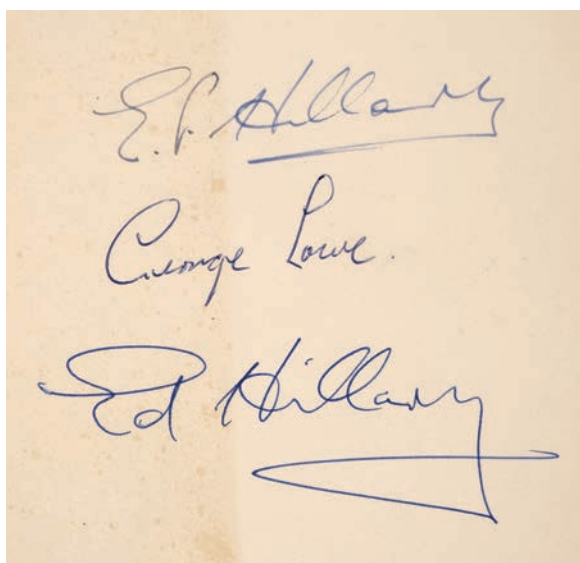 E.P. Hillary
George Lowe.
Ed Hillary